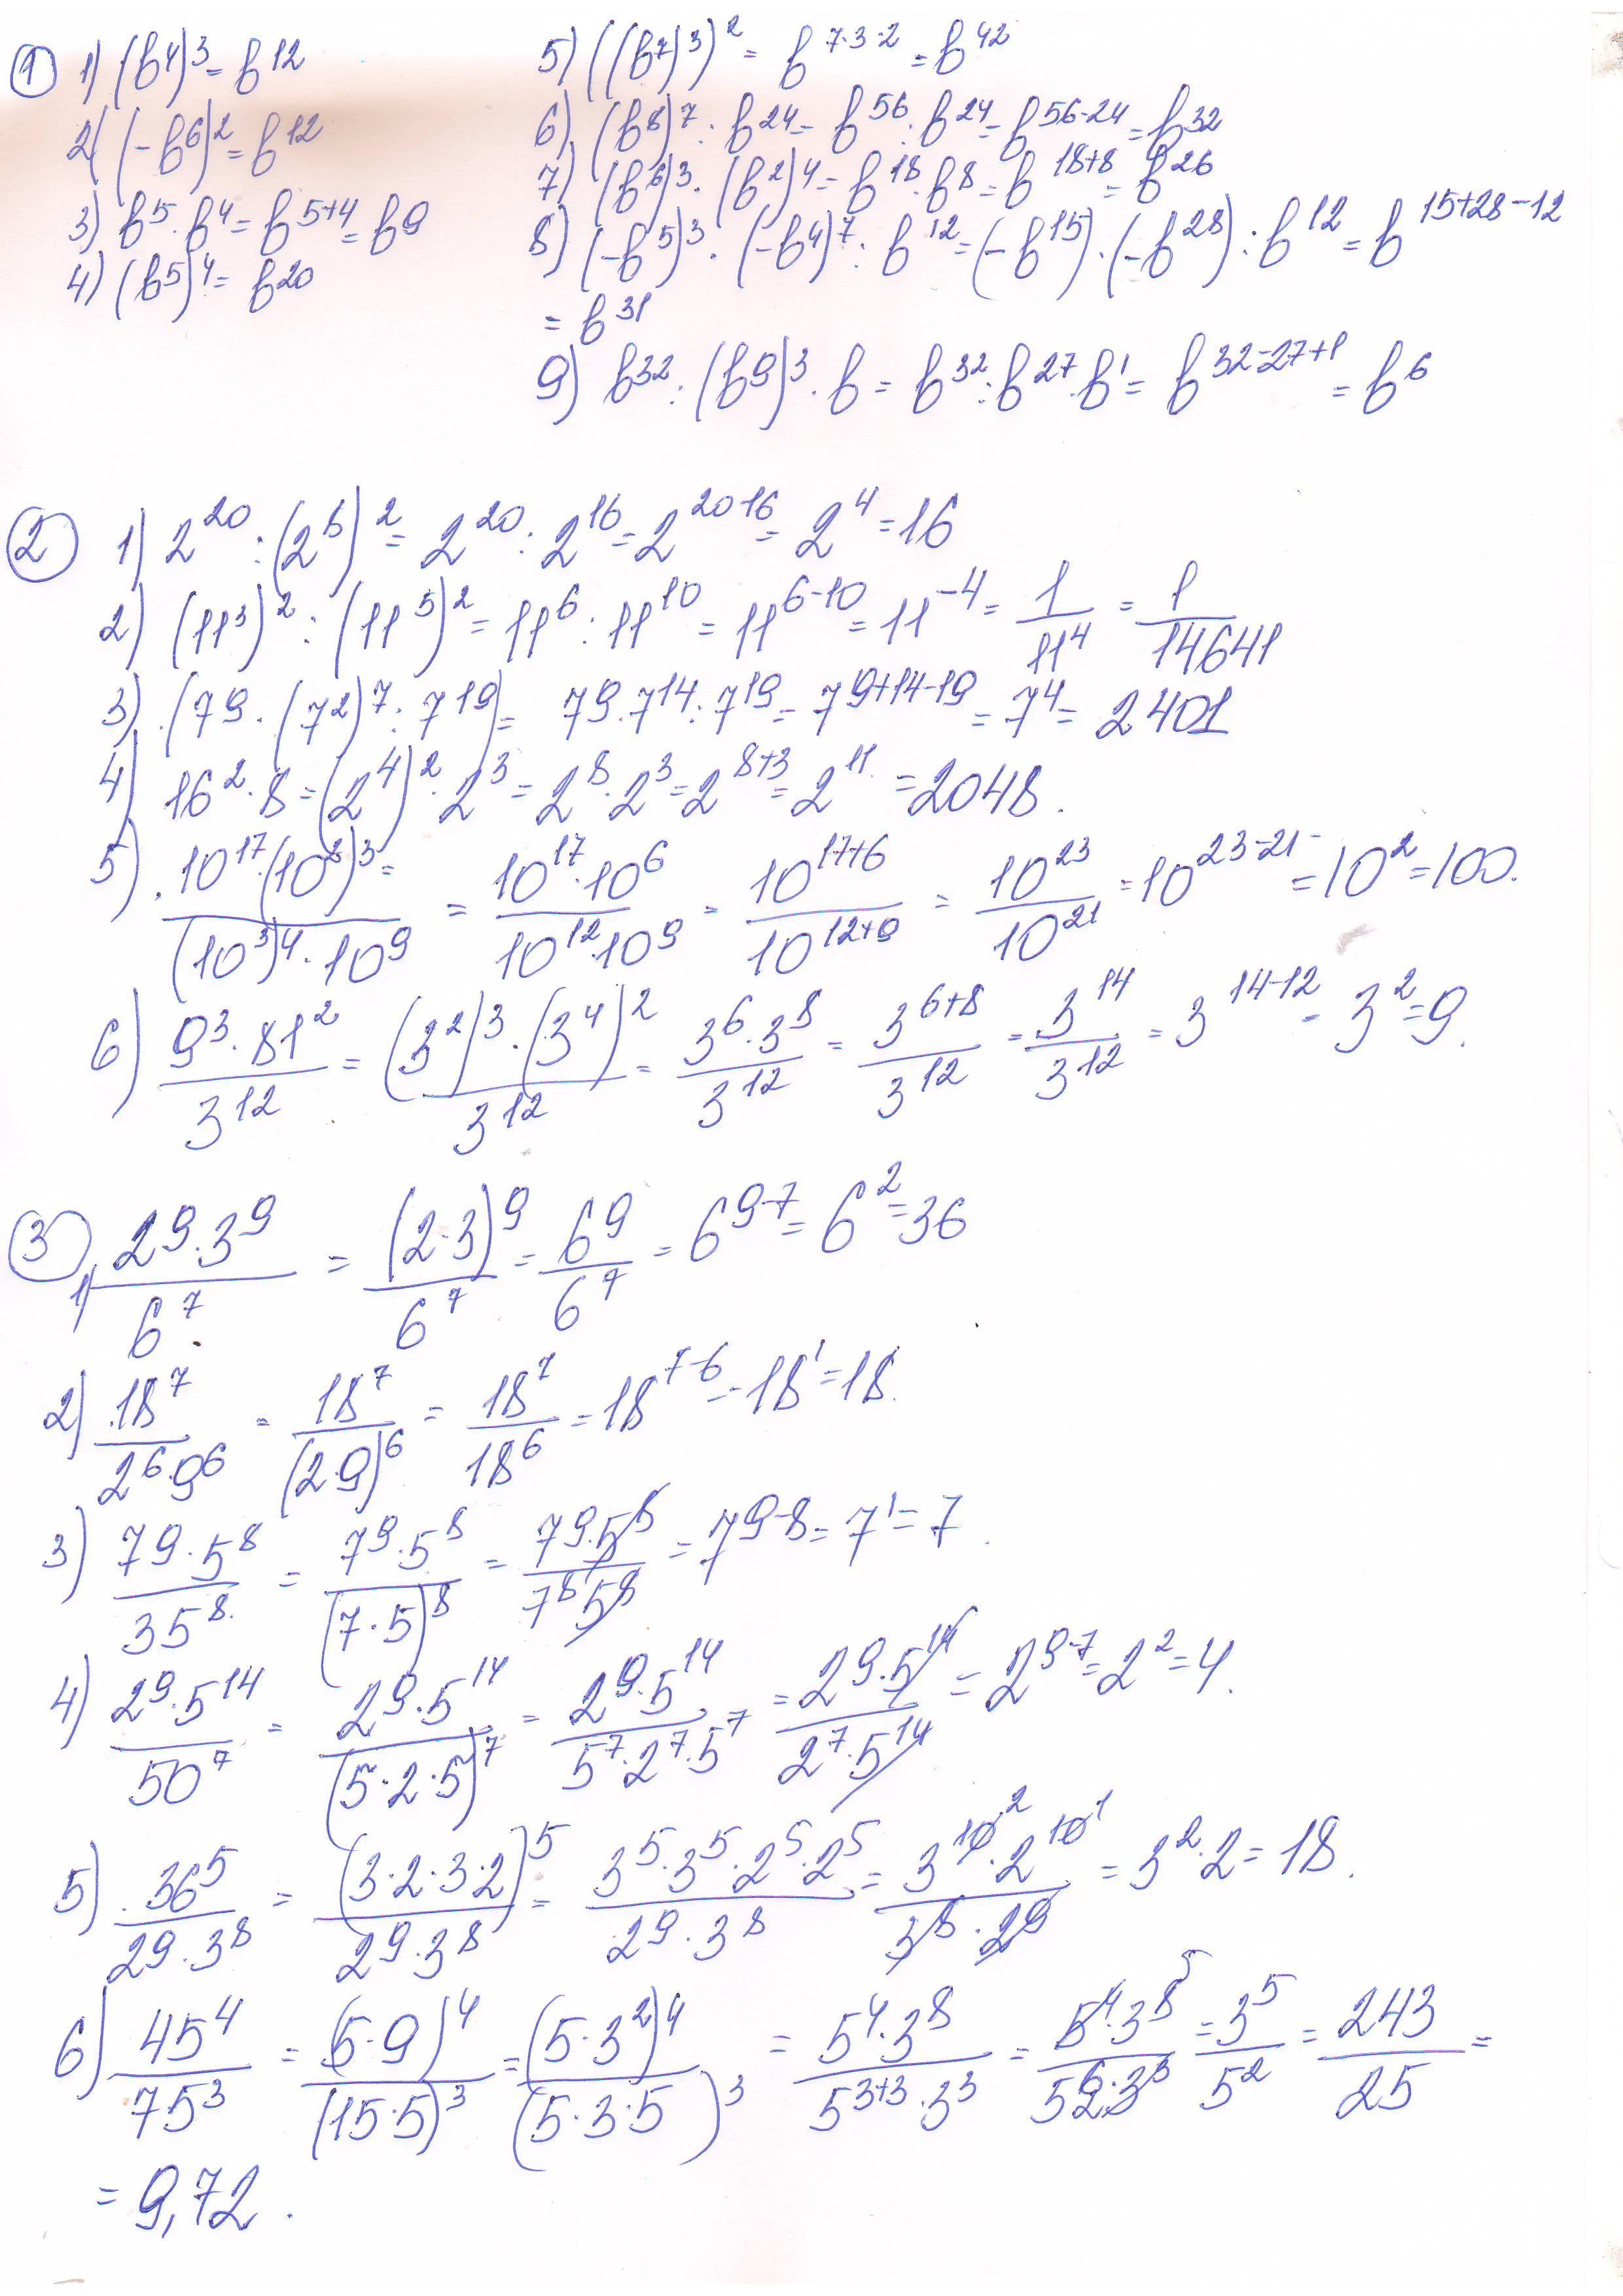 ① 1) (b⁴)³ = b¹²
2) (-b⁶)² = b¹²
3) b⁵·b⁴ = b⁵⁺⁴ = b⁹
4) (b⁵)⁴ = b²⁰
5) ((b⁷)³)² = b^(7·3·2) = b⁴²
6) (b⁸)⁷ : b²⁴ = b⁵⁶ : b²⁴ = b⁵⁶⁻²⁴ = b³²
7) (b⁶)³ · (b²)⁴ = b¹⁸ · b⁸ = b¹⁸⁺⁸ = b²⁶
8) (-b⁵)³ · (-b⁴)⁷ : b¹² = (-b¹⁵) · (-b²⁸) : b¹² = b¹⁵⁺²⁸⁻¹²
= b³¹
9) b³² : (b⁹)³ · b = b³² : b²⁷ · b¹ = b³²⁻²⁷⁺¹ = b⁶
② 1) 2²⁰ : (2⁶)² = 2²⁰ : 2¹⁶ = 2²⁰⁻¹⁶ = 2⁴ = 16
2) (11³)² : (11⁵)² = 11⁶ : 11¹⁰ = 11⁶⁻¹⁰ = 11⁻⁴ = 1/11⁴ = 1/14641
3) (7⁹ · (7²)⁷ : 7¹⁹) = 7⁹ · 7¹⁴ : 7¹⁹ = 7⁹⁺¹⁴⁻¹⁹ = 7⁴ = 2401
4) 16² · 8 = (2⁴)² · 2³ = 2⁸ · 2³ = 2⁸⁺³ = 2¹¹ = 2048.
5) 10¹⁷·(10²)³ / (10³)⁴·10⁹ = 10¹⁷·10⁶ / 10¹²·10⁹ = 10¹⁷⁺⁶ / 10¹²⁺⁹ = 10²³ / 10²¹ = 10²³⁻²¹ = 10² = 100.
6) 9³·81² / 3¹² = (3²)³·(3⁴)² / 3¹² = 3⁶·3⁸ / 3¹² = 3⁶⁺⁸ / 3¹² = 3¹⁴ / 3¹² = 3¹⁴⁻¹² = 3² = 9.
③ 1) 2⁹·3⁹ / 6⁷ = (2·3)⁹ / 6⁷ = 6⁹ / 6⁷ = 6⁹⁻⁷ = 6² = 36
2) 18⁷ / 2⁶·9⁶ = 18⁷ / (2·9)⁶ = 18⁷ / 18⁶ = 18⁷⁻⁶ = 18¹ = 18.
3) 7⁹·5⁸ / 35⁸ = 7⁹·5⁸ / (7·5)⁸ = 7⁹·5⁸ / 7⁸5⁸ = 7⁹⁻⁸ = 7¹ = 7.
4) 2⁹·5¹⁴ / 50⁷ = 2⁹·5¹⁴ / (5·2·5)⁷ = 2⁹·5¹⁴ / 5⁷·2⁷·5⁷ = 2⁹·5¹⁴ / 2⁷·5¹⁴ = 2⁹⁻⁷ = 2² = 4.
5) 36⁵ / 2⁹·3⁸ = (3·2·3·2)⁵ / 2⁹·3⁸ = 3⁵·3⁵·2⁵·2⁵ / 2⁹·3⁸ = 3¹⁰ ²·2¹⁰ ¹ / 3⁸·2⁹ = 3²·2 = 18.
6) 45⁴ / 75³ = (5·9)⁴ / (15·5)³ = (5·3²)⁴ / (5·3·5)³ = 5⁴·3⁸ / 5³⁺³·3³ = 5⁴·3⁸ ⁵ / 5⁶ ²·3³ = 3⁵ / 5² = 243 / 25 =
= 9,72.